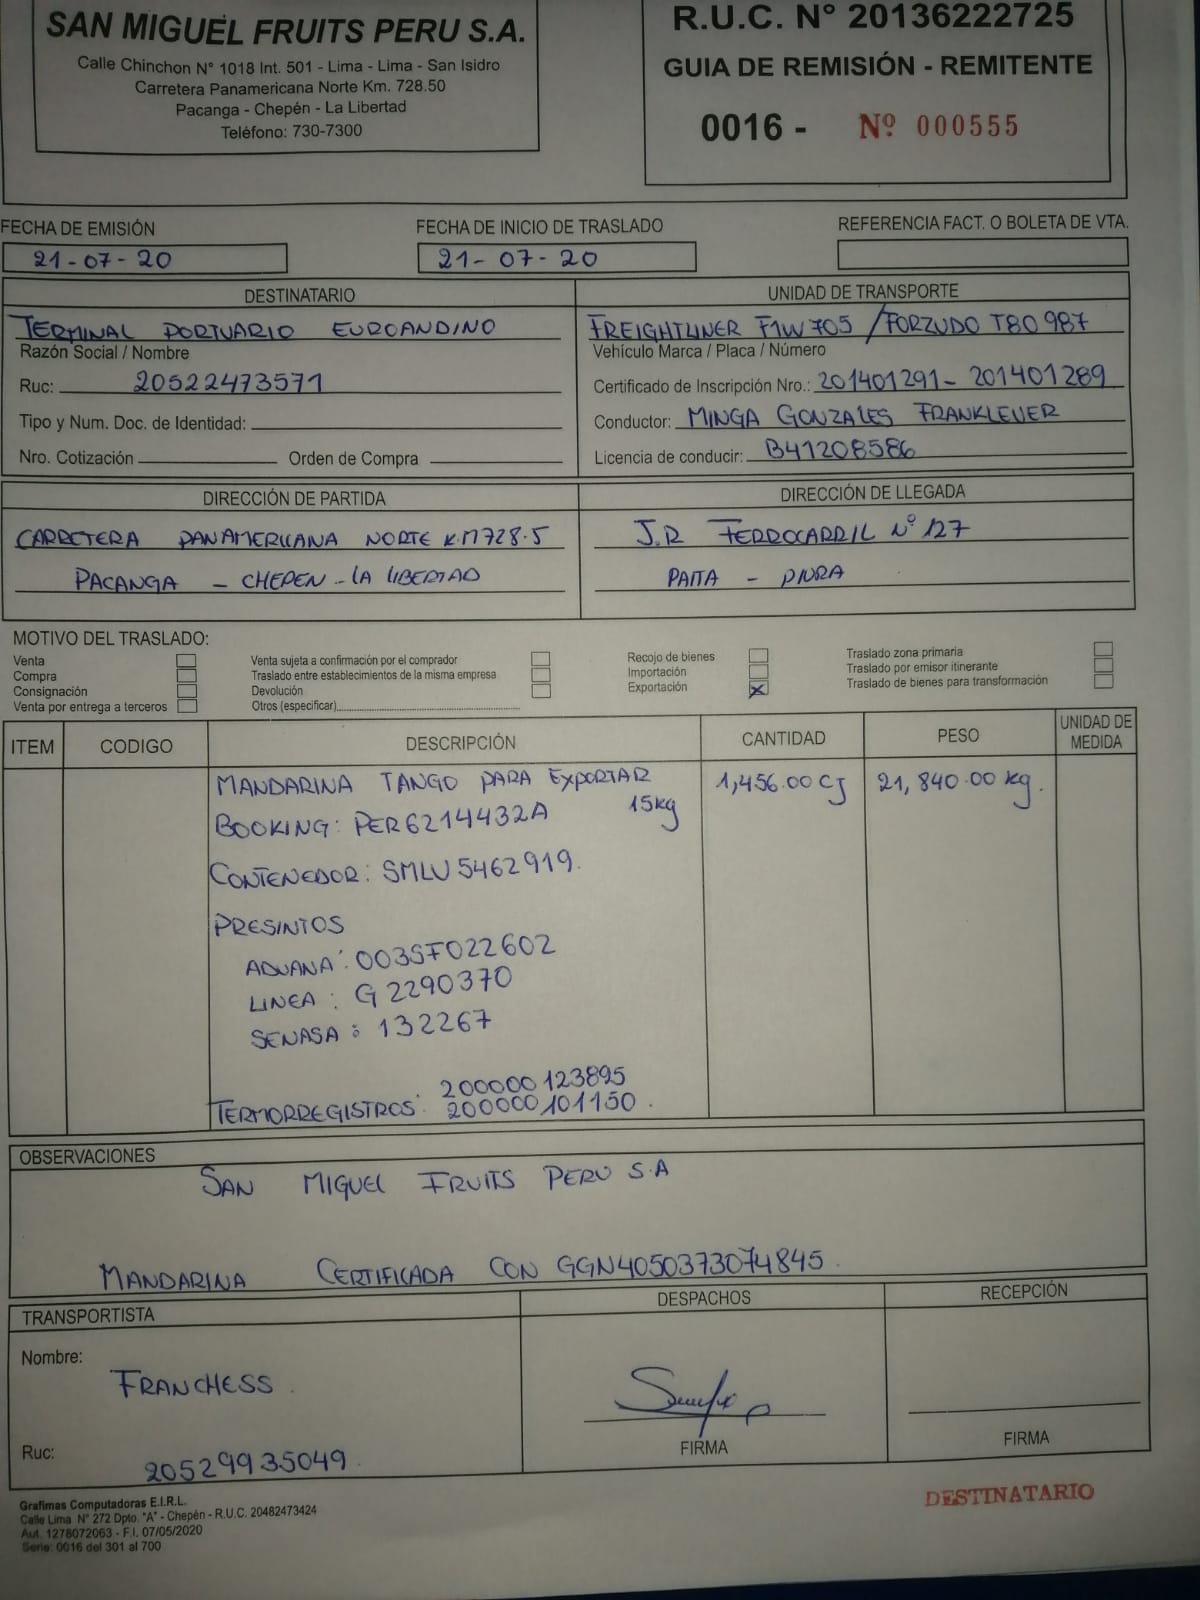 SAN MIGUEL FRUITS PERU S.A.
Calle Chinchon N° 1018 Int. 501 - Lima - Lima - San Isidro
Carretera Panamericana Norte Km. 728.50
Pacanga - Chepén - La Libertad
Teléfono: 730-7300
R.U.C. N° 20136222725
GUIA DE REMISIÓN - REMITENTE
0016 - Nº 000555
FECHA DE EMISIÓN
21-07-20
FECHA DE INICIO DE TRASLADO
21-07-20
REFERENCIA FACT. O BOLETA DE VTA.
DESTINATARIO
TERMINAL PORTUARIO EUROANDINO
Razón Social / Nombre
Ruc: 20522473571
Tipo y Num. Doc. de Identidad:
Nro. Cotización Orden de Compra
UNIDAD DE TRANSPORTE
FREIGHTLINER F1W705 / FORZUDO T80 987
Vehículo Marca / Placa / Número
Certificado de Inscripción Nro.: 201401291- 201401289
Conductor: MINGA GONZALES FRANKLEVER
Licencia de conducir: B41208586
DIRECCIÓN DE PARTIDA
CARRETERA PANAMERICANA NORTE K.M728.5
PACANGA - CHEPEN - LA LIBERTAD
DIRECCIÓN DE LLEGADA
J.R FERROCARRIL N° 127
PAITA - PIURA
MOTIVO DEL TRASLADO:
Venta
Compra
Consignación
Venta por entrega a terceros
Venta sujeta a confirmación por el comprador
Traslado entre establecimientos de la misma empresa
Devolución
Otros (especificar)
Recojo de bienes
Importación
Exportación X
Traslado zona primaria
Traslado por emisor itinerante
Traslado de bienes para transformación
ITEM CODIGO DESCRIPCIÓN CANTIDAD PESO UNIDAD DE MEDIDA
MANDARINA TANGO PARA EXPORTAR 1,456.00 CJ 21,840.00 kg.
15kg
BOOKING: PER6214432A
CONTENEDOR: SMLU 5462919.
PRESINTOS
ADUANA: 003SF022602
LINEA: G2290370
SENASA: 132267
200000123895
TERMORREGISTROS: 200000101150.
OBSERVACIONES
SAN MIGUEL FRUITS PERU S.A
MANDARINA CERTIFICADA CON GGN4050373074845.
TRANSPORTISTA
Nombre:
FRANCHESS.
Ruc:
20529935049.
DESPACHOS
FIRMA
RECEPCIÓN
FIRMA
Grafimas Computadoras E.I.R.L.
Calle Lima N° 272 Dpto. "A" - Chepén - R.U.C. 20482473424
Aut. 1278072063 - F.I. 07/05/2020
Serie: 0016 del 301 al 700
DESTINATARIO